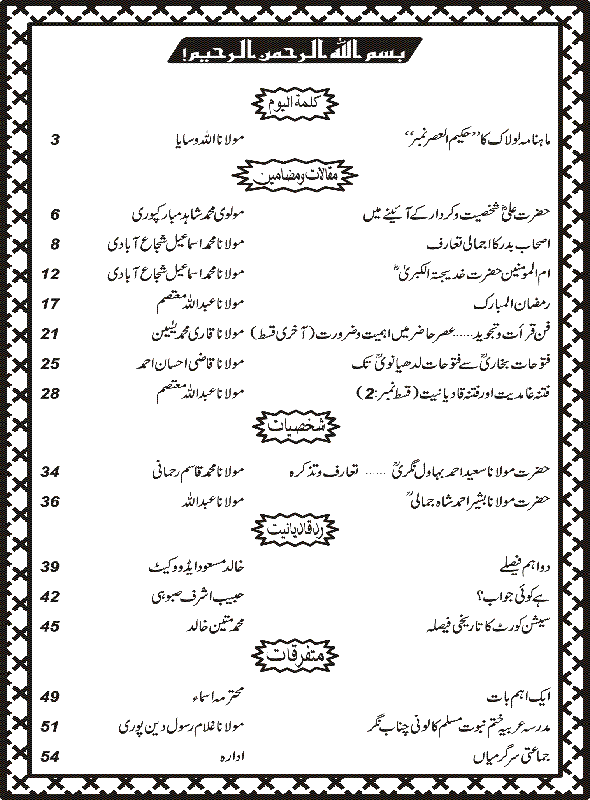 بسم اللہ الرحمن الرحیم!
کلمۃ الیوم
ماہنامہ لولاک کا ”حکیم العصر نمبر“ مولانا اللہ وسایا 3
مقالات ومضامین
حضرت علیؓ شخصیت وکردار کے آئینے میں مولوی محمد شاہد مبارکپوری 6
اصحاب بدر کا اجمالی تعارف مولانا محمد اسماعیل شجاع آبادی 8
ام المومنین حضرت خدیجۃ الکبریٰؓ مولانا محمد اسماعیل شجاع آبادی 12
رمضان المبارک مولانا عبداللہ معتصم 17
فن قرأت وتجوید......عصر حاضر میں اہمیت وضرورت (آخری قسط) مولانا قاری محمد یٰسین 21
فتوحات بخاریؒ سے فتوحات لدھیانویؒ تک مولانا قاضی احسان احمد 25
فتنہ غامدیت اور فتنہ قادیانیت (قسط نمبر:2) مولانا عبداللہ معتصم 28
شخصیات
حضرت مولانا سعید احمد بہاول نگریؒ ...... تعارف وتذکرہ مولانا محمد قاسم رحمانی 34
حضرت مولانا بشیر احمد شاہ جمالیؒ مولانا عبداللہ 36
ردقادیانیت
دو اہم فیصلے خالد مسعود ایڈووکیٹ 39
ہے کوئی جواب؟ حبیب اشرف صبوحی 42
سیشن کورٹ کا تاریخی فیصلہ محمد متین خالد 45
متفرقات
ایک اہم بات محترمہ اسماء 49
مدرسہ عربیہ ختم نبوت مسلم کالونی چناب نگر مولانا غلام رسول دین پوری 51
جماعتی سرگرمیاں ادارہ 54